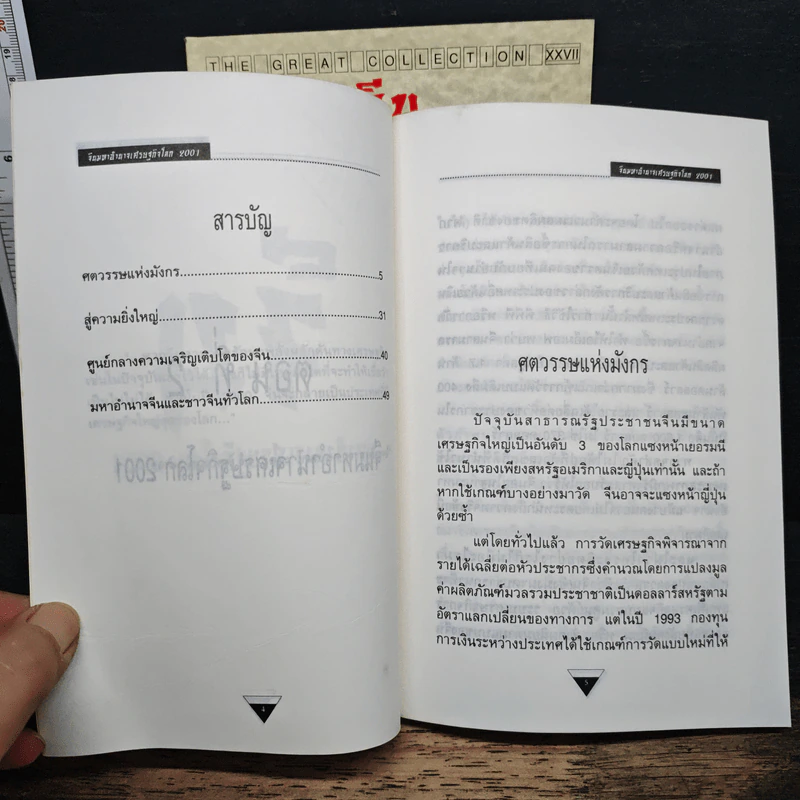 THE GREAT COLLECTION XXVII
จีนมหาอำนาจเศรษฐกิจโลก 2001
สารบัญ
ศตวรรษแห่งมังกร........................................................5
สู่ความยิ่งใหญ่........................................................31
ศูนย์กลางความเจริญเติบโตของจีน............................40
มหาอำนาจจีนและชาวจีนทั่วโลก............................49
4
จีนมหาอำนาจเศรษฐกิจโลก 2001
ศตวรรษแห่งมังกร
ปัจจุบันสาธารณรัฐประชาชนจีนมีขนาด
เศรษฐกิจใหญ่เป็นอันดับ 3 ของโลกแซงหน้าเยอรมนี
และเป็นรองเพียงสหรัฐอเมริกาและญี่ปุ่นเท่านั้น และถ้า
หากใช้เกณฑ์บางอย่างมาวัด จีนอาจจะแซงหน้าญี่ปุ่น
ด้วยซ้ำ
แต่โดยทั่วไปแล้ว การวัดเศรษฐกิจพิจารณาจาก
รายได้เฉลี่ยต่อหัวประชากรซึ่งคำนวณโดยการแปลงมูล
ค่าผลิตภัณฑ์มวลรวมประชาชาติเป็นดอลลาร์สหรัฐตาม
อัตราแลกเปลี่ยนของทางการ แต่ในปี 1993 กองทุน
การเงินระหว่างประเทศได้ใช้เกณฑ์การวัดแบบใหม่ที่ให้
5